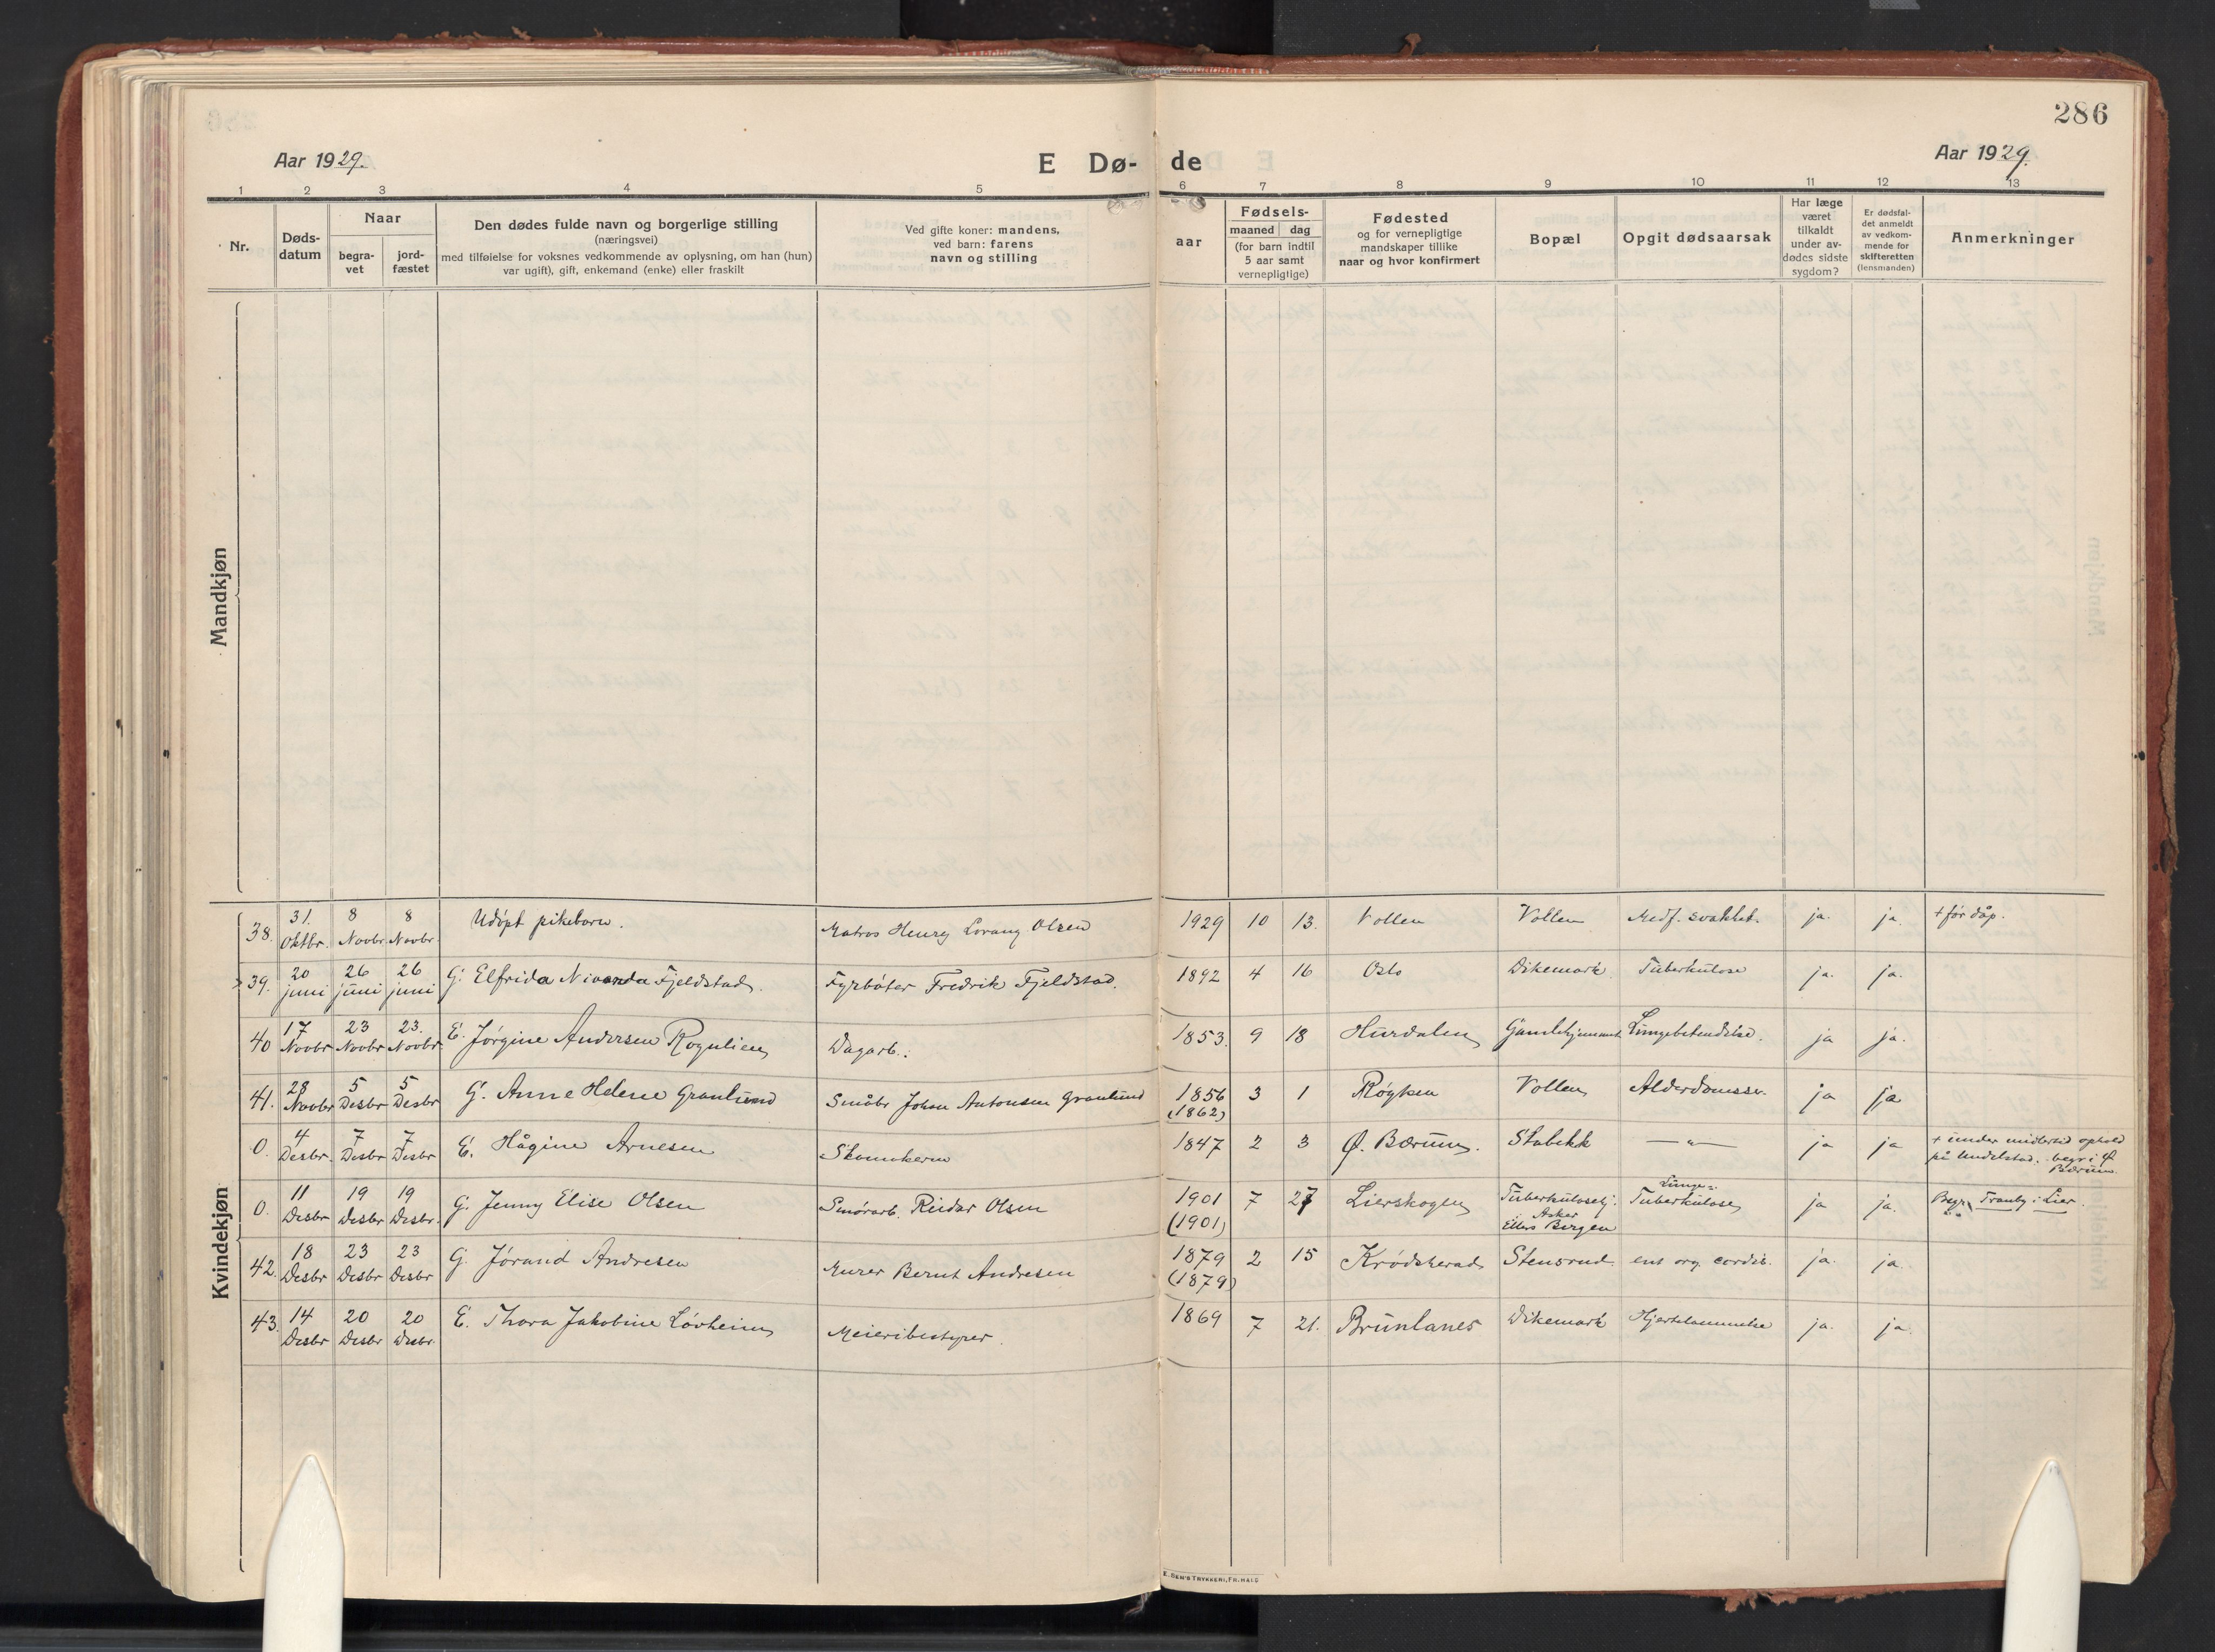 286
Aar 1929.
E Dø- de
Aar 1929.
1 2 3 4 5 6 7 8 9 10 11 12 13
Nr.
Døds-
datum
Naar
begra-
vet
jord-
fæstet
Den dødes fulde navn og borgerlige stilling
(næringsvei)
med tilføielse for voksnes vedkommende av oplysning, om han (hun)
var ugift), gift, enkemand (enke) eller fraskilt
Ved gifte koner: mandens,
ved barn: farens
navn og stilling
aar
Fødsels-
maaned dag
(for barn indtil
5 aar samt
vernepligtige)
Fødested
og for vernepligtige
mandskaper tillike
naar og hvor konfirmert
Bopæl
Opgit dødsaarsak
Har læge
været
tilkaldt
under av-
dødes sidste
sygdom?
Er dødsfal-
det anmeldt
av vedkom-
mende for
skifteretten
(lensmanden)
Anmerkninger
Mandkjøn
Kvindekjøn
38. 31. Oktbr. 8 Novbr. 8 Novbr. Udøpt pikebarn. Matros Henry Lorang Olsen 1929 10 13. Vollen Vollen Medf. svakhet. ja. ja. + før dåp.
39. 20 juni 26 juni 26 juni G. Elfrida Nivarda Fjeldstad. Fyrbøter Fredrik Fjeldstad. 1892 4 16 Oslo Dikemark Tuberkulose ja. ja.
40 17 Novbr 23 Novbr 23. Novbr. E. Jørgine Andersen Rognlien Dagarb. 1853. 9 18 Hurdalen Gamlehjemmet Lungebetendelse. ja ja.
41. 28 Novbr 5 Desbr 5 Desbr G. Anne Helene Granlund Småbr Johan Antonsen Granlund 1856 (1862) 3 1 Røyken Vollen Alderdomssv. ja ja
0. 4 Desbr. 7 Desbr 7 Desbr E. Hågine Arnesen Skomakerm 1847 2 3 Ø. Bærum. Stabekk —"— ja ja + under midlertid ophold
på Undelstad. begr i Ø
Bærum.
0. 11 Desbr 19 Desbr 19 Desbr. G. Jenny Elise Olsen Smørarb. Reidar Olsen 1901 (1901) 7 27 Lierskogen Tuberkulosehj. i Asker Ellers Bergen Lunge-Tuberkulose ja ja. Begr. Tranby i Lier.
42. 18 Desbr 23 Desbr 23 Desbr G. Jørand Andresen Murer Bernt Andresen 1879 (1879) 2 15 Krødsherad Stensrud. ent org. cordis. ja. ja
43. 14 Desbr 20 Desbr 20 Desbr. E. Thora Jakobine Løvheim Meieribestyrer. 1869 7 21. Brunlanes Dikemark Hjertelammelse ja. ja.
E. SEM'S TRYKKERI, FR.HALD